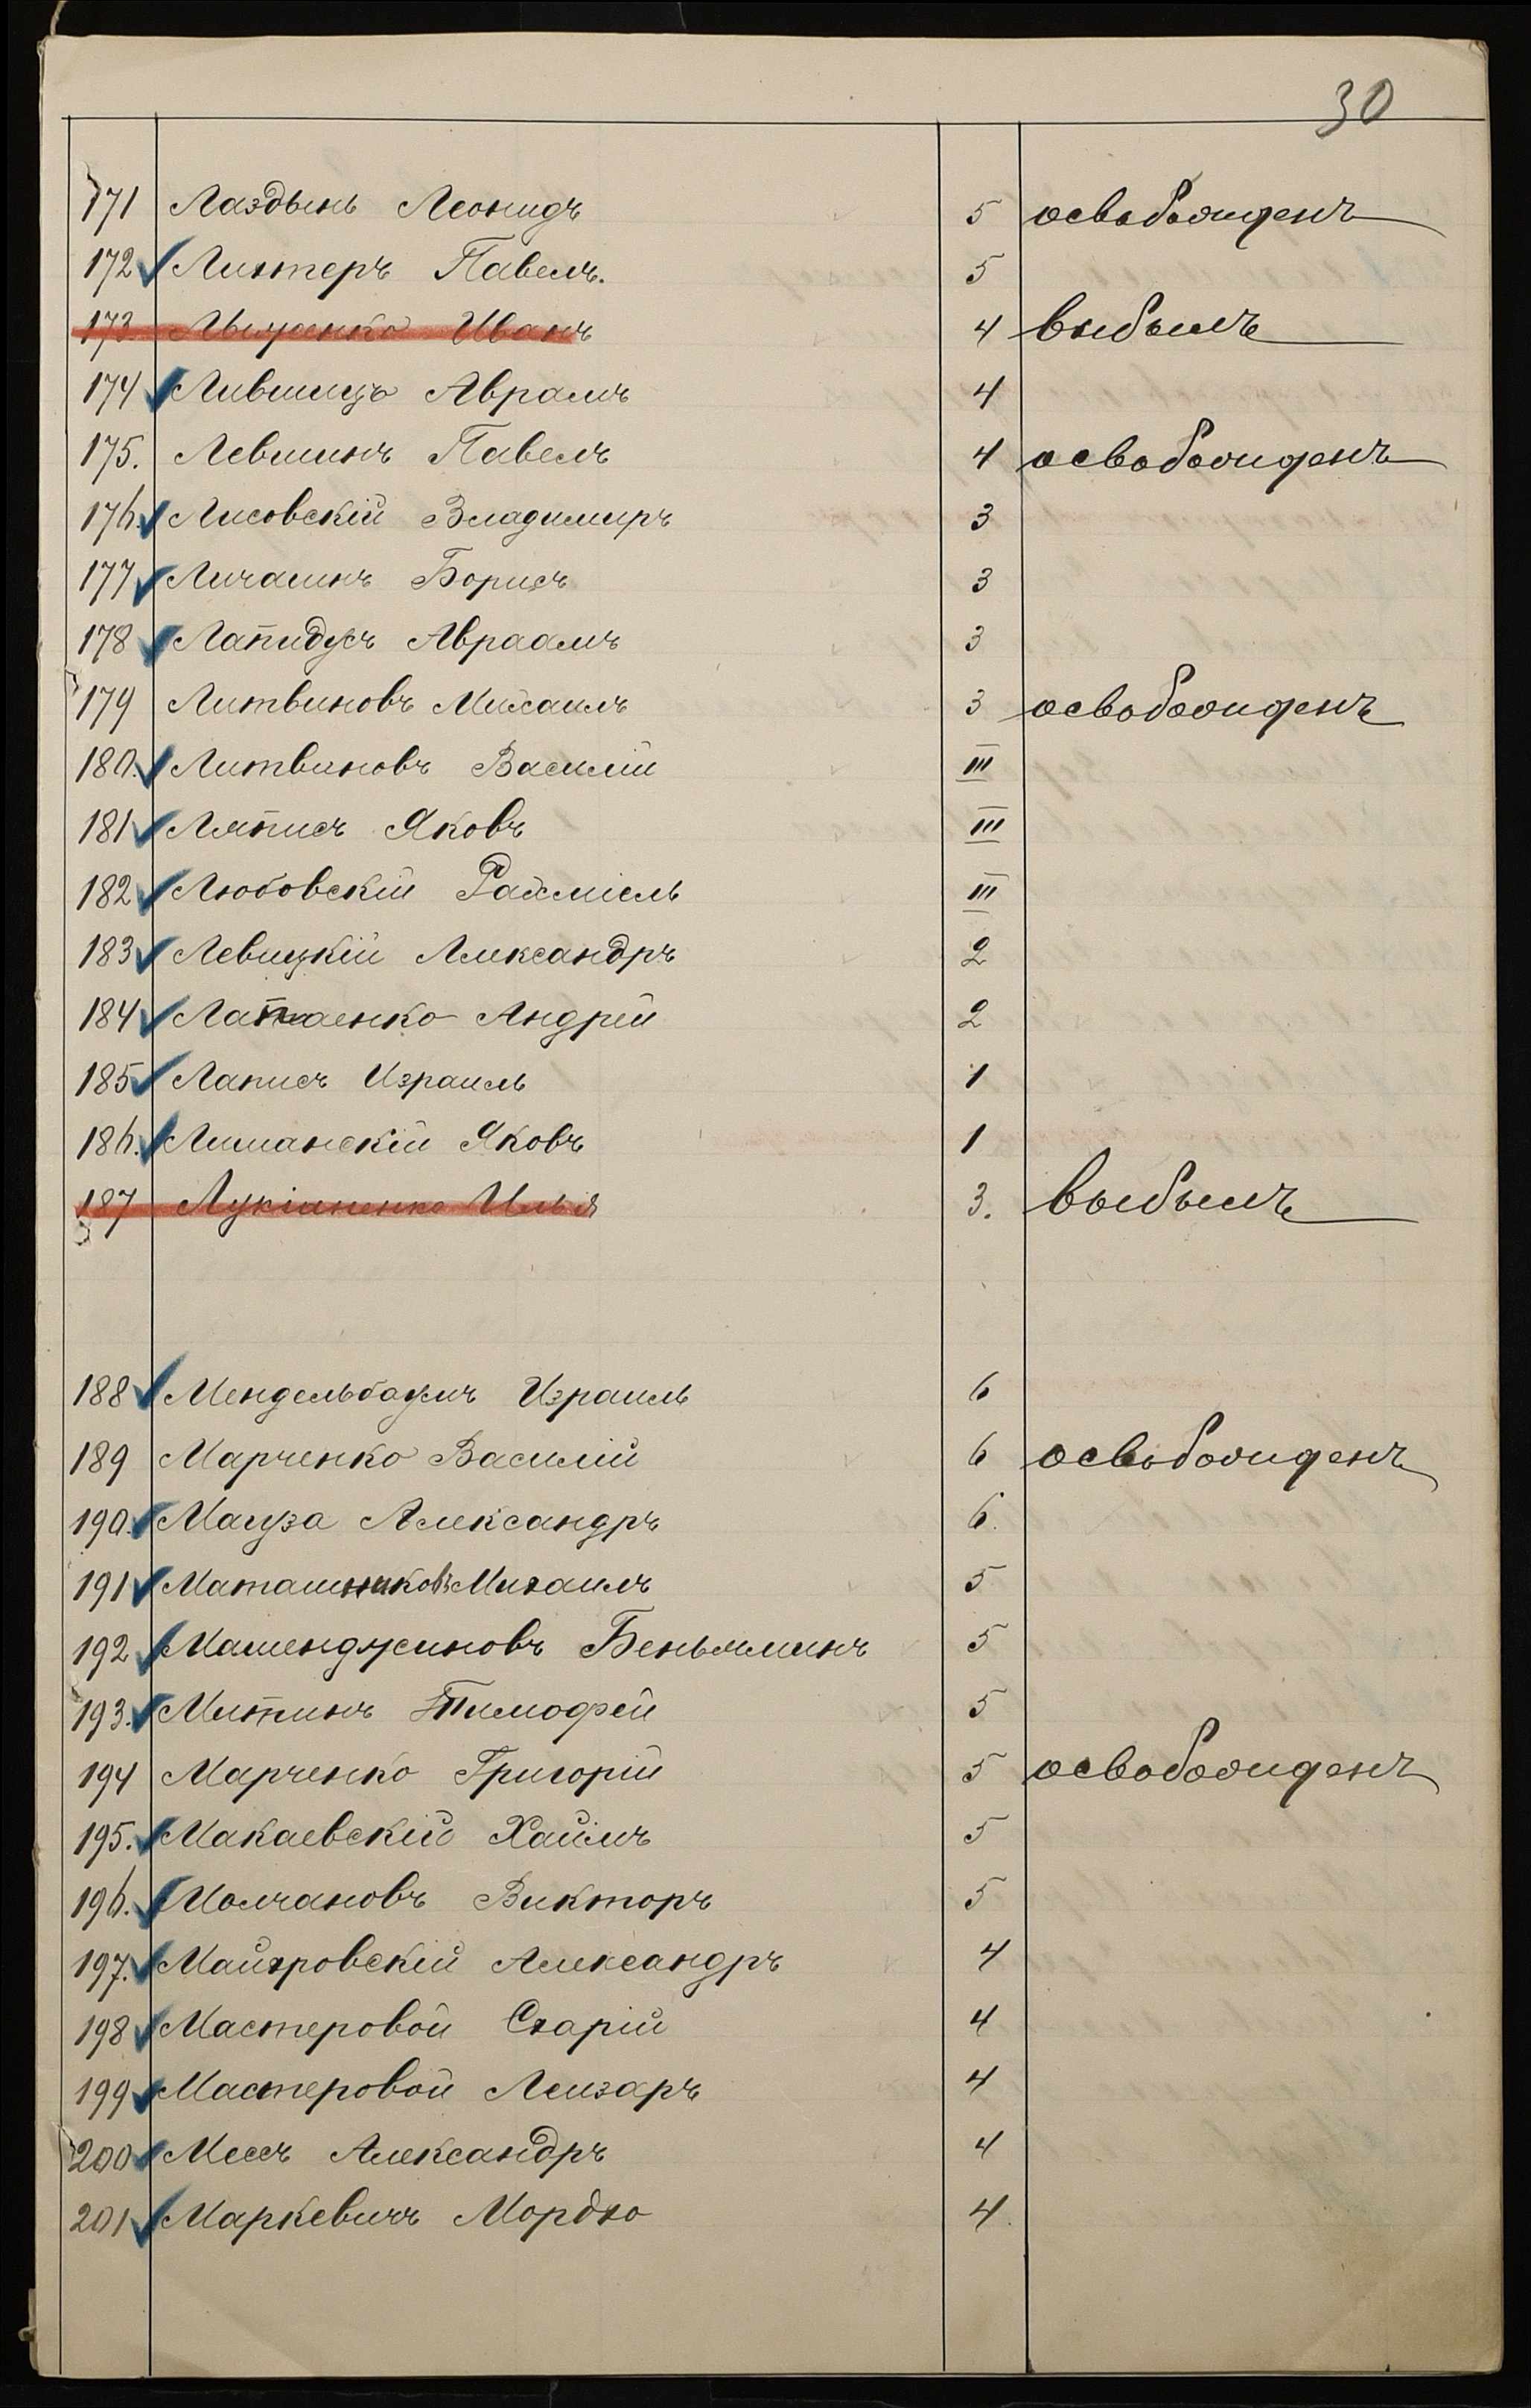 30
171 Лаздынь Леонидъ 5 освобожденъ
172 Лихтеръ Павелъ. 5
173. Иванъ 4 выбылъ
174 Лившицъ Аврамъ 4
175. Левшинъ Павелъ 4 освобожденъ
176. Лисовскій Владимиръ 3
177 Личагинъ Борисъ 3
178 Лапидусъ Авраамъ 3
179 Литвиновъ Михаилъ 3 освобожденъ
180. Литвиновъ Василій III
181 Ляписъ Яковъ III
182 Любовскій Рахміель III
183 Левицкій Александръ 2
184 Андрей 2
185 Лаписъ Израиль 1
186. Лиманскій Яковъ 1
187 Лукіяненко Илья 3. выбылъ
188 Мендельбаумъ Израиль 6
189 Марченко Василій 6 освобожденъ
190. Магуза Александръ 6.
191 Маташниковъ Михаилъ 5
192 Маменджиновъ Беньяминъ 5
193. Митинъ Тимофей 5
194 Марченко Григорій 5 освобожденъ
195. Макаевскій Хаимъ 5
196. Молчановъ Викторъ 5
197. Майзровскій Александръ 4
198 Мастеровой Схарій 4
199 Мастеровой Лейзаръ 4
200 Месъ Александръ 4
201 Маркевичъ Мордхо 4.